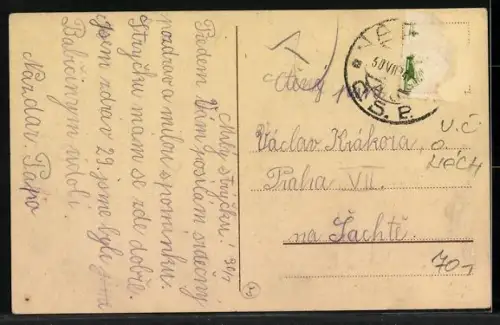 Milý strýčku! 30/7
Předem Vám posílám srdečný
pozdrav a milou spomínku.
Strýčku mám se zde dobře.
Jsem zdráv 29. jsme byli
Babiččiným údolí.
Nazdar. Pepo
Václav Krákora
Praha VII.
na Šachtě.
Č.S.P.
70,-